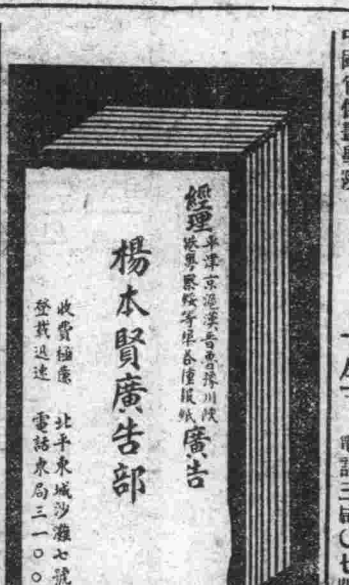 經理平津京滬漢晉魯豫川陝
港粵察綏等埠各種報紙廣告
楊本賢廣告部
收費極廉
登載迅速
北平東城沙灘七號
電話東局三一〇〇